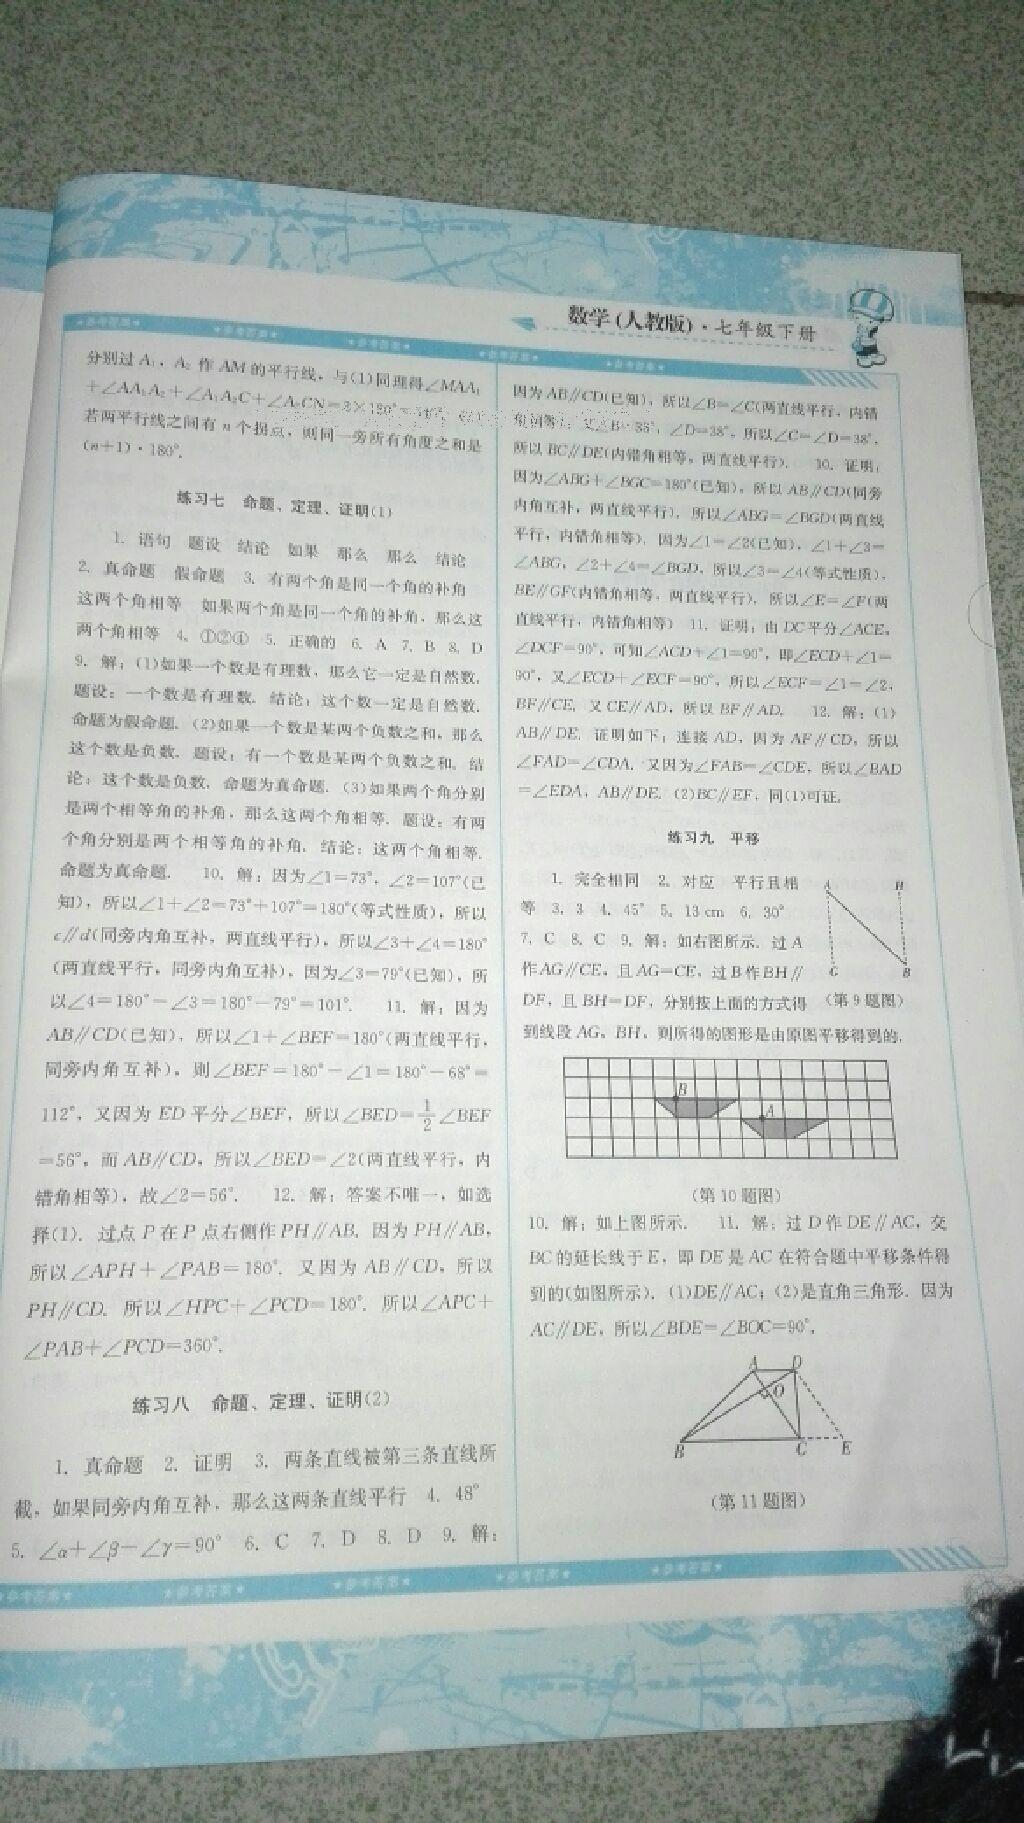 数学(人教版)·七年级下册
分别过 A₁、A₂ 作 AM 的平行线,与(1)同理得∠MAA₁
+∠AA₁A₂+∠A₁A₂C+∠A₂CN=3×180°
若两平行线之间有 n 个拐点,则同一旁所有角度之和是
(n+1)·180°.
练习七 命题、定理、证明(1)
1. 语句 题设 结论 如果 那么 那么 结论
2. 真命题 假命题 3. 有两个角是同一个角的补角
这两个角相等 如果两个角是同一个角的补角,那么这
两个角相等 4. ①②④ 5. 正确的 6. A 7. B 8. D
9. 解:(1)如果一个数是有理数,那么它一定是自然数.
题设:一个数是有理数. 结论:这个数一定是自然数.
命题为假命题. (2)如果一个数是某两个负数之和,那么
这个数是负数. 题设:有一个数是某两个负数之和. 结
论:这个数是负数. 命题为真命题. (3)如果两个角分别
是两个相等角的补角,那么这两个角相等. 题设:有两
个角分别是两个相等角的补角. 结论:这两个角相等.
命题为真命题. 10. 解:因为∠1=73°,∠2=107°(已
知),所以∠1+∠2=73°+107°=180°(等式性质),所以
c∥d(同旁内角互补,两直线平行),所以∠3+∠4=180°
(两直线平行,同旁内角互补),因为∠3=79°(已知),所
以∠4=180°-∠3=180°-79°=101°. 11. 解:因为
AB∥CD(已知),所以∠1+∠BEF=180°(两直线平行,
同旁内角互补),则∠BEF=180°-∠1=180°-68°=
112°,又因为 ED 平分∠BEF,所以∠BED=1/2∠BEF
=56°,而 AB∥CD,所以∠BED=∠2(两直线平行,内
错角相等),故∠2=56°. 12. 解:答案不唯一,如选
择(1). 过点 P 在 P 点右侧作 PH∥AB. 因为 PH∥AB,
所以∠APH+∠PAB=180°. 又因为 AB∥CD,所以
PH∥CD. 所以∠HPC+∠PCD=180°. 所以∠APC+
∠PAB+∠PCD=360°.
练习八 命题、定理、证明(2)
1. 真命题 2. 证明 3. 两条直线被第三条直线所
截,如果同旁内角互补,那么这两条直线平行 4. 48°
5. ∠α+∠β-∠γ=90° 6. C 7. D 8. D 9. 解:
因为 AB∥CD(已知),所以∠B=∠C(两直线平行,内错
角相等),又∠B=38°,∠D=38°,所以∠C=∠D=38°,
所以 BC∥DE(内错角相等,两直线平行). 10. 证明:
因为∠ABG+∠BGC=180°(已知),所以 AB∥CD(同旁
内角互补,两直线平行). 所以∠ABG=∠BGD(两直线
平行,内错角相等). 因为∠1=∠2(已知),∠1+∠3=
∠ABG,∠2+∠4=∠BGD,所以∠3=∠4(等式性质),
BE∥GF(内错角相等,两直线平行),所以∠E=∠F(两
直线平行,内错角相等) 11. 证明:由 DC 平分∠ACE,
∠DCF=90°,可知∠ACD+∠1=90°,即∠ECD+∠1=
90°,又∠ECD+∠ECF=90°,所以∠ECF=∠1=∠2,
BF∥CE. 又 CE∥AD,所以 BF∥AD. 12. 解:(1)
AB∥DE. 证明如下:连接 AD,因为 AF∥CD,所以
∠FAD=∠CDA. 又因为∠FAB=∠CDE,所以∠BAD
=∠EDA,AB∥DE. (2)BC∥EF,同(1)可证.
练习九 平移
1. 完全相同 2. 对应 平行且相
等 3. 3 4. 45° 5. 13 cm 6. 30°
7. C 8. C 9. 解:如右图所示. 过 A
作 AG∥CE,且 AG=CE,过 B 作 BH∥
DF,且 BH=DF,分别按上面的方式得
到线段 AG,BH,则所得的图形是由原图平移得到的.
A H
G B
(第 9 题图)
B
A
(第 10 题图)
10. 解:如上图所示. 11. 解:过 D 作 DE∥AC,交
BC 的延长线于 E,即 DE 是 AC 在符合题中平移条件得
到的(如图所示). (1)DE∥AC;(2)是直角三角形. 因为
AC∥DE,所以∠BDE=∠BOC=90°.
A D
O
B C E
(第 11 题图)
★参考答案★ ★参考答案★ ★参考答案★ ★参考答案★ ★参考答案★